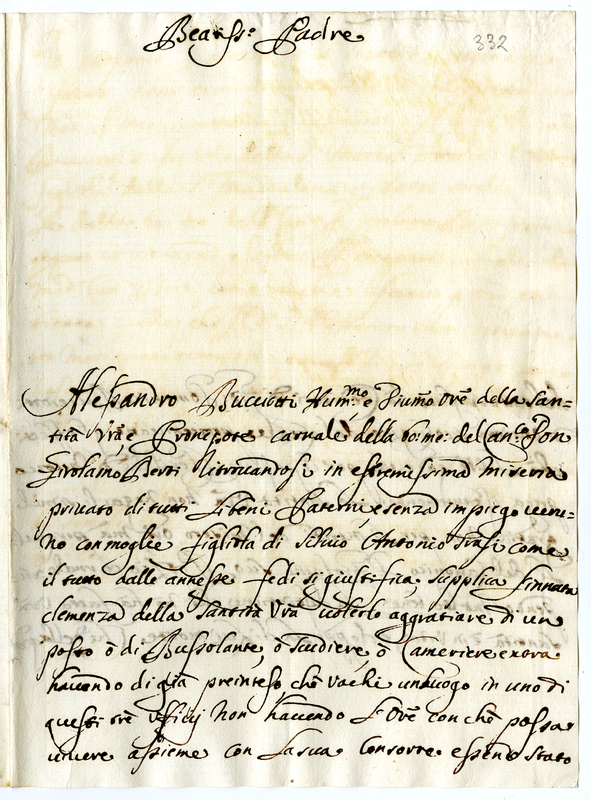 Beatiss.o Padre
332
Alessandro Bucciotti Hum.mo e Diumo Ore della San=
tità Vrã, e Pronepote carnale della bo: me: del Can.co Don
Girolamo Berti ritrovandosi in estremissima miseria
privato di tutti li beni Paterni, e senza impiego veru=
no con moglie figliola di Silvio Antonio come
il tutto dalle annesse fedi si giustifica, supplica l'innata
clemenza della Santità Vrã volerlo aggratiare di un
posto ò di Bussolante, ò Scudiere, ò Cameriere extra
havendo di già preinteso, che vachi un luogo in uno di
questi trè Uffitij non havendo l'Ore con che possa
vivere assieme con la sua Consorte essendo stato